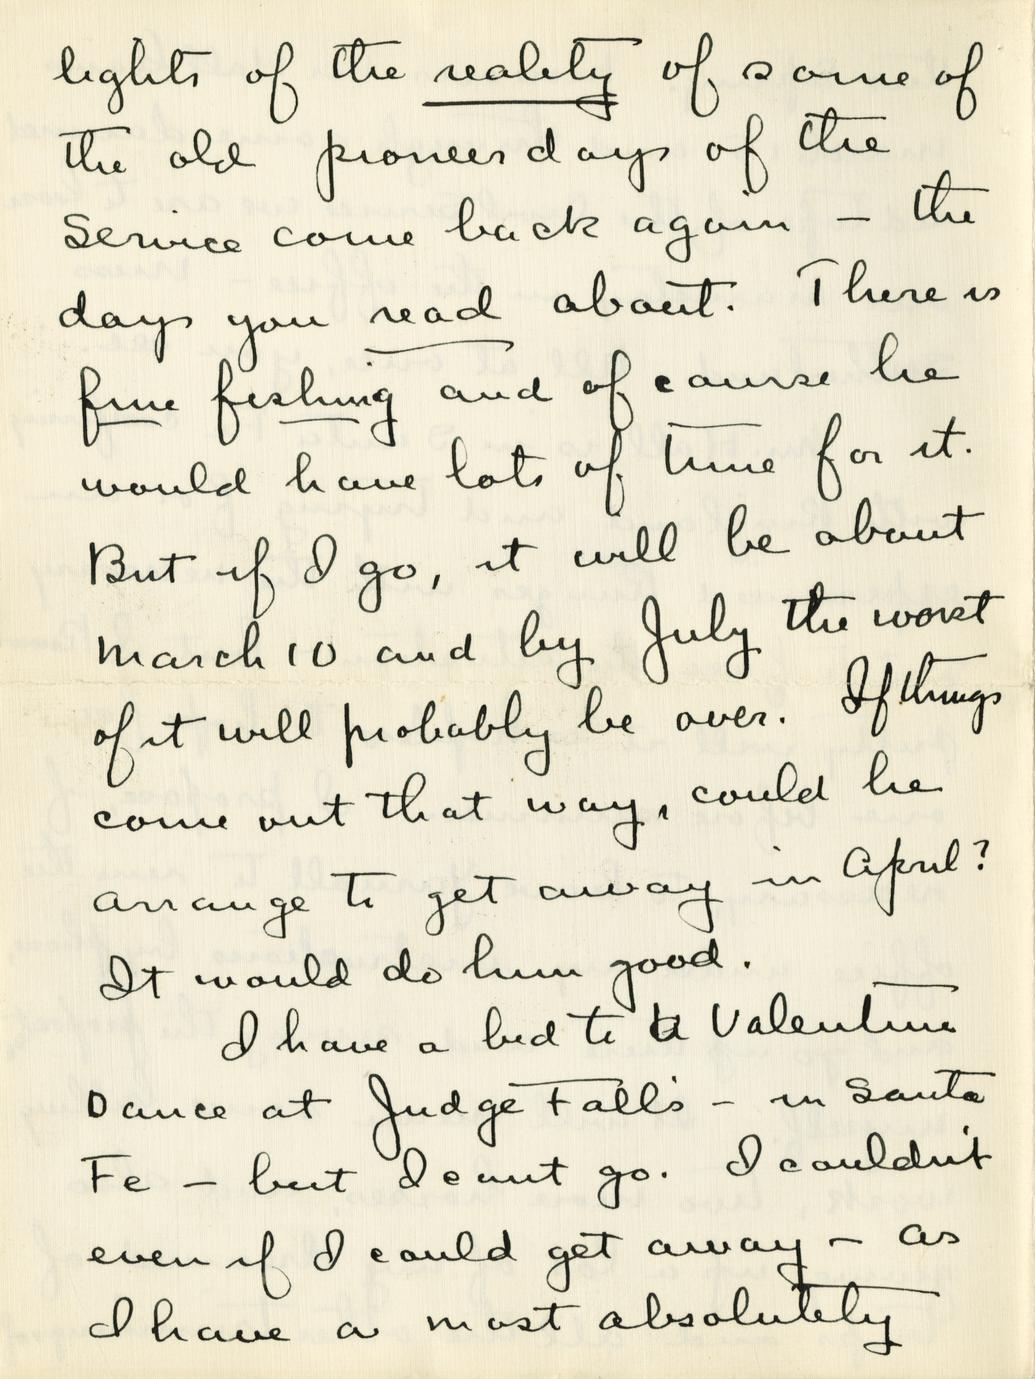 lights of the reality of some of
the old pioneer days of the
Service come back again – the
days you read about. There is
fine fishing and of course he
would have lots of time for it.
But if I go, it will be about
March 10 and by July the worst
of it will probably be over. If things
come out that way, could he
arrange to get away in April?
It would do him good.
I have a bid to a Valentine
Dance at Judge Fall's – in Santa
Fe – but I cant go. I couldn't
even if I could get away – as
I have a most absolutely